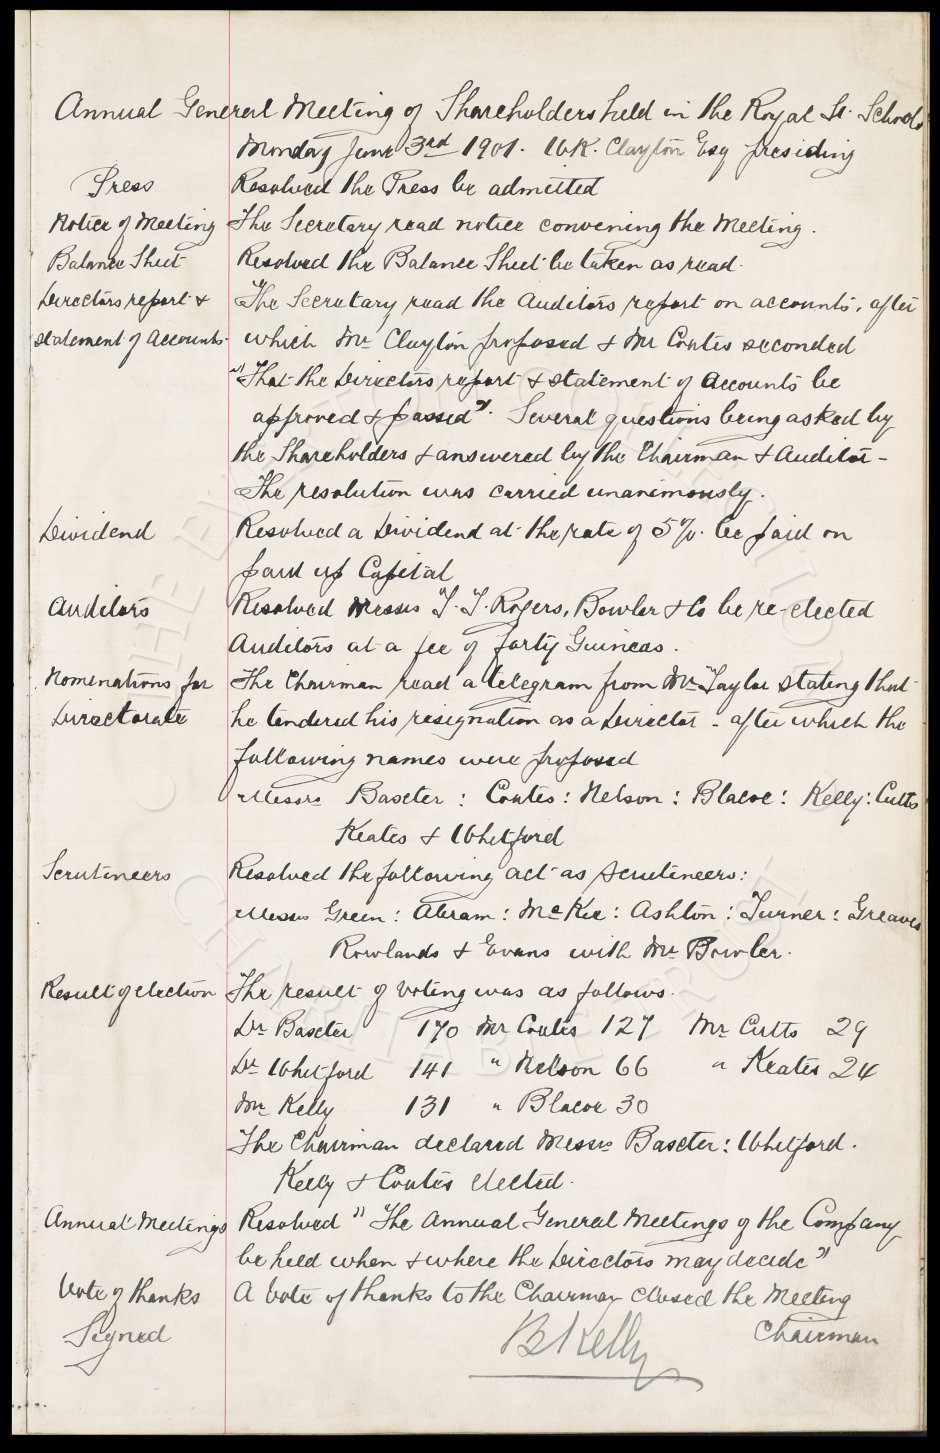 Annual General Meeting of Shareholders held in the Royal St. Schools
Monday June 3rd 1901. W.R. Clayton Esq presiding
Press Resolved the Press be admitted
Notice of Meeting The Secretary read notice convening the Meeting.
Balance Sheet Resolved the Balance Sheet be taken as read.
Directors report & The Secretary read the Auditors report on accounts, after
statement of Accounts. which Mr Clayton proposed & Mr Coates seconded
"That the Directors report & statement of Accounts be
approved & passed". Several questions being asked by
the Shareholders & answered by the Chairman & Auditor -
The resolution was carried unanimously.
Dividend Resolved a Dividend at the rate of 5%. be paid on
paid up Capital
Auditors Resolved Messrs T. T. Rogers, Bowler & Co be re-elected
Auditors at a fee of forty Guineas.
Nominations for The Chairman read a telegram from Mr Taylor stating that
Directorate he tendered his resignation as a Director - after which the
following names were proposed
Messrs Baxter: Coates: Nelson: Blacoe: Kelly: Cutts
Keates & Whitford
Scrutineers Resolved the following act as Scrutineers:
Messrs Green: Abram: McKee: Ashton: Turner: Greaves
Rowlands & Evans with Mr Bowler.
Result of election The result of voting was as follows.
Dr Baxter 170 Mr Coates 127 Mr Cutts 29
Dr Whitford 141 " Nelson 66 " Keates 24
Mr Kelly 131 " Blacoe 30
The Chairman declared Messrs Baxter: Whitford.
Kelly & Coates elected.
Annual Meetings Resolved "The Annual General Meetings of the Company
be held when & where the Directors may decide"
Vote of thanks A Vote of thanks to the Chairman closed the Meeting
Signed B Kelly Chairman